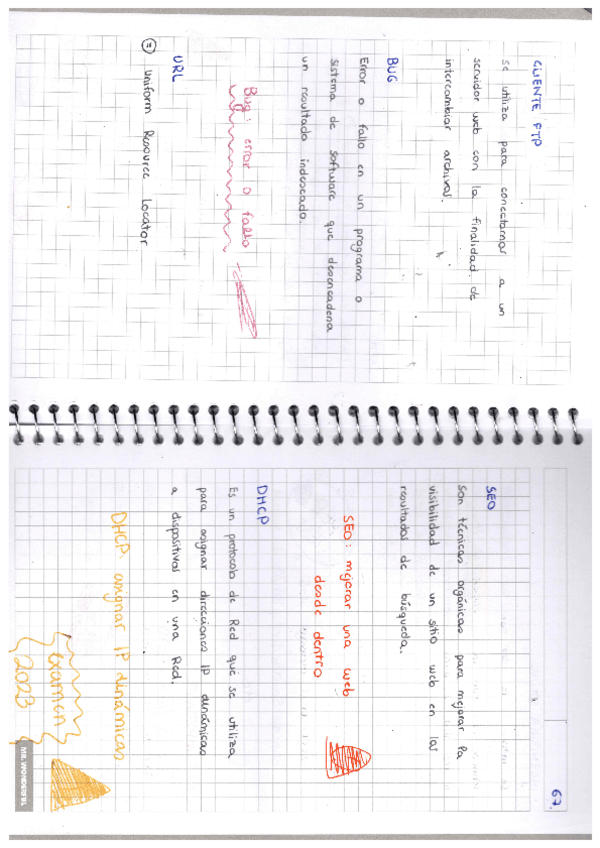 CLIENTE FTP
se utiliza para conectarnos a un
servidor web con la finalidad de
intercambiar archivos.
BUG
Error o fallo en un programa o
sistema de software que desencadena
un resultado indeseado.
Bug: error o fallo
URL
Uniform Resource Locator
67.
SEO
Son técnicas orgánicas para mejorar la
visibilidad de un sitio web en los
resultados de búsqueda.
SEO: mejorar una web
desde dentro
DHCP
Es un protocolo de Red que se utiliza
para asignar direcciones IP dinámicas
a dispositivos en una Red.
DHCP: asignar IP dinámicas
examen
2023
MR. WONDERFUL